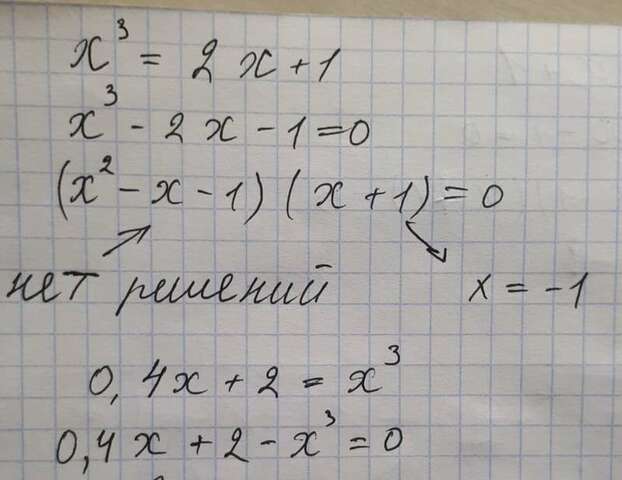 x³ = 2x+1
x³ - 2x - 1=0
(x² - x - 1) (x + 1) = 0
нет решений x = -1
0,4x + 2 = x³
0,4x + 2 - x³ = 0